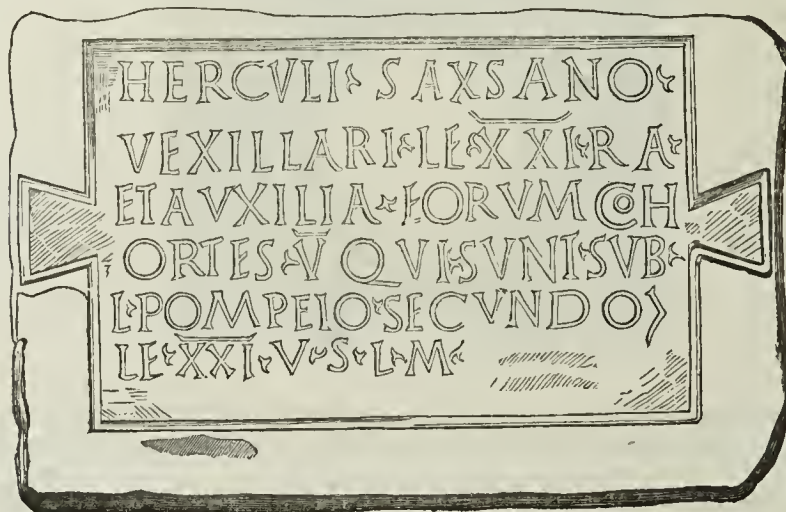 HERCVLI · SAXSANO ·
VEXILLARI · LE · XXI · RA ·
ETAVXILIA · EORVM COH
ORTES · V QVI · SVNT · SVB ·
L · POMPEIO · SECVNDO 〉
LE · XXI · V · S · L · M ·